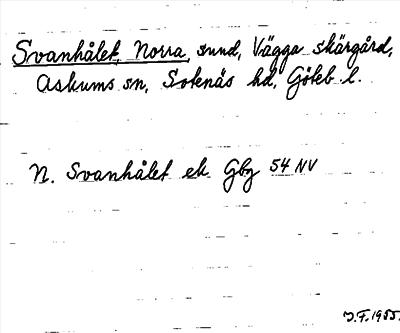 Svanhålet, Norra, sund, Vägga skärgård,
Askums sn, Sotenäs hd, Göteb. l.
N. Svanhålet ek Gbg 54 NV
J.F. 1955.